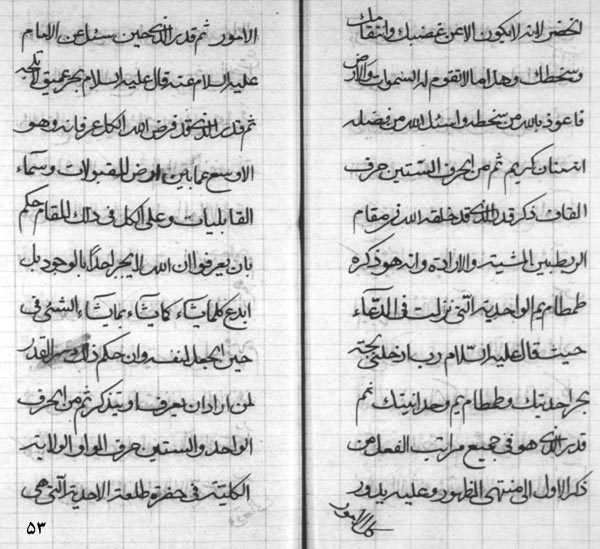 انحضر لانه لا يكون الا عن غضبك وانتقامك
وسخطك وهذا ما لا تقوم له السموات والارض
فاعوذ بالله من سخطه واسئل الله من فضله
انه منان كريم ثم من الحرف الستين حرف
القاف ذكر قدر الذي قد خلقه الله في مقام
الربط بين المشية والارادة وانه هو ذكره
طمطام يم الواحدية التي نزلت في الدعاء
حيث قال عليه السلام رب ادخلني في لجة
بحر احديتك وطمطام يم وحدانيتك ثم
قدر الذي هو في جميع مراتب الفعل من
ذكر الاول الى منتهى الظهور وعليه يدور
كل الامور
الامور ثم قدر الذي حين سئل عن الامام
عليه السلام عنه قال عليه السلام بحر عميق لا تلجه
ثم قدر الذي قد فرض الله الكل عرفانه وهو
الاوسع عما بين ارض المقبولات وسماء
القابليات وعلى الكل في ذلك المقام حكم
بان يعرفوا ان الله لا يجبر احدا بالوجود بل
ابدع كلما يشاء كما يشاء بما يشاء الشئ في
حين الجعل لنفسه وان حكم ذلك هو سر القدر
لمن اراد ان يعرف او يتذكر ثم من الحرف
الواحد والستين حرف الواو الولاية
الكلية في حضرة طلعة الاحدية التي هي
۵۳